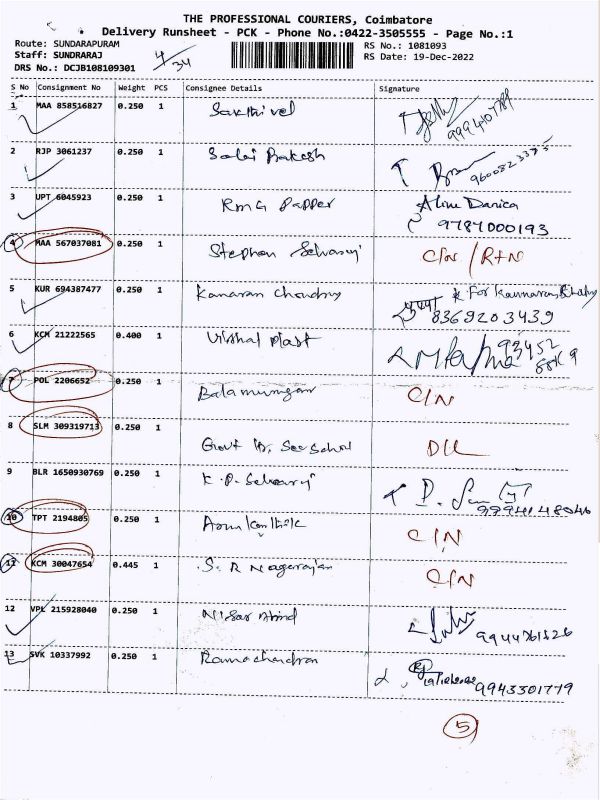 THE PROFESSIONAL COURIERS, Coimbatore
Delivery Runsheet - PCK - Phone No.:0422-3505555 - Page No.:1
Route: SUNDARAPURAM RS No.: 1081093
Staff: SUNDRARAJ 4/34 RS Date: 19-Dec-2022
DRS No.: DCJB108109301
S No Consignment No Weight PCS Consignee Details Signature
1 MAA 858516827 0.250 1 Sakthivel
2 RJP 3061237 0.250 1 Salai Prakash
3 UPT 6045923 0.250 1 RMG Papper Aline Danica
9787000193
4 MAA 567037081 0.250 1 Stephen Selvaraj C/N / RTN
5 KUR 694387477 0.250 1 Kanaran Choudry
8369203439
6 KCM 21222565 0.400 1 Vishal Plast
7 POL 2206652 0.250 1 Balamurugan C/N
8 SLM 309319713 0.250 1 Govt Hr. Sec School DLL
9 BLR 1650930769 0.250 1 K.P. Selvaraj
9994148046
10 TPT 2194805 0.250 1 C/N
11 KCM 30047654 0.445 1 S. R Nagarajan C/N
12 VPL 215928040 0.250 1 Nisar Ahmd 9944761526
13 SVK 10337992 0.250 1 Ramachandran 9943301779
5